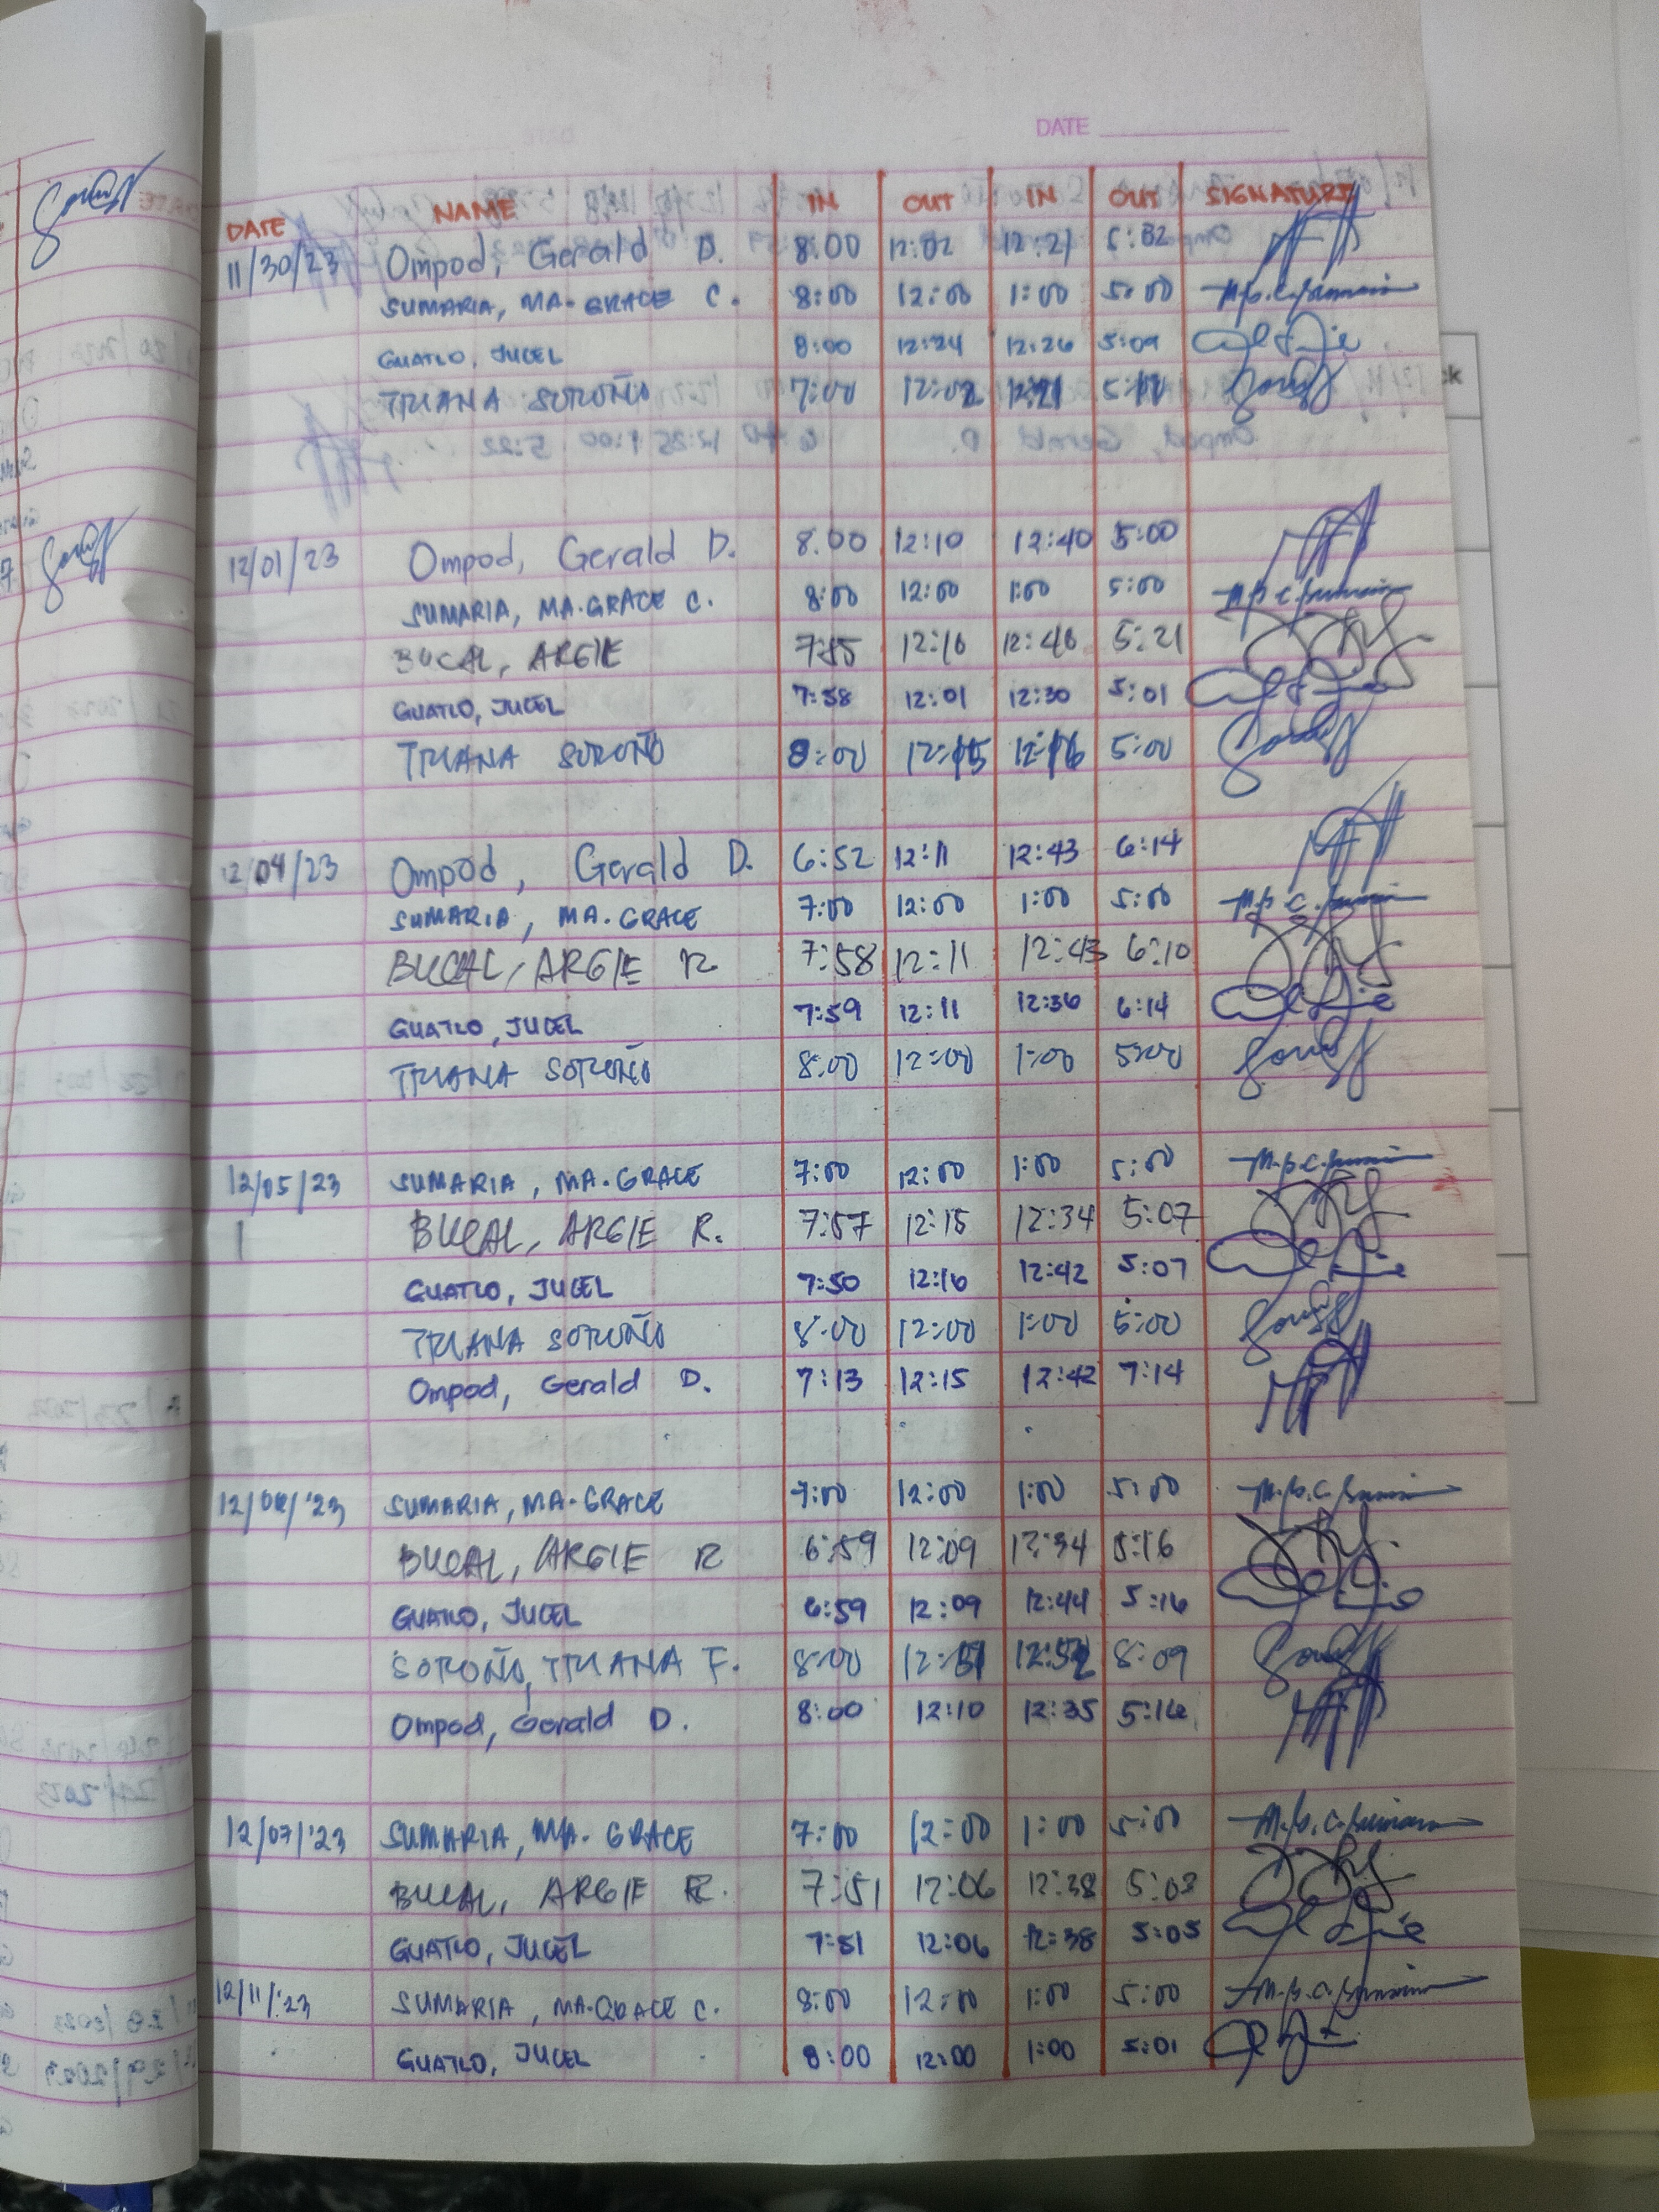 DATE
DATE NAME IN OUT IN OUT SIGNATURE
11/30/23 Ompod, Gerald D. 8:00 12:02 12:21 5:02
SUMARIA, MA. GRACE C. 8:00 12:00 1:00 5:00
GUATLO, JUCEL 8:00 12:24 12:26 5:09
TRIANA SOROÑO 7:00 12:02 12:21
12/01/23 Ompod, Gerald D. 8:00 12:10 12:40 5:00
SUMARIA, MA. GRACE C. 8:00 12:00 1:00 5:00
BUCAL, ARGIE 12:16 12:46 5:21
GUATLO, JUCEL 7:58 12:01 12:30 5:01
TRIANA SOROÑO 8:00 12:15 12:16 5:00
12/04/23 Ompod, Gerald D. 6:52 12:11 12:43 6:14
SUMARIA, MA. GRACE 7:00 12:00 1:00 5:00
BUCAL, ARGIE R 7:58 12:11 12:43 6:10
GUATLO, JUCEL 7:59 12:11 12:36 6:14
TRIANA SOROÑO 8:00 12:00 1:00 5:00
12/05/23 SUMARIA, MA. GRACE 7:00 12:00 1:00 5:00
BUCAL, ARGIE R. 7:57 12:15 12:34 5:07
GUATLO, JUCEL 7:50 12:16 12:42 5:07
TRIANA SOROÑO 8:00 12:00 1:00 5:00
Ompod, Gerald D. 7:13 12:15 12:42 7:14
12/06/'23 SUMARIA, MA. GRACE 7:00 12:00 1:00 5:00
BUCAL, ARGIE R 6:59 12:09 12:34 5:16
GUATLO, JUCEL 6:59 12:09 12:44 5:16
SOROÑO, TRIANA F. 8:00 12:51 12:52 8:09
Ompod, Gerald D. 8:00 12:10 12:35 5:16
12/07/'23 SUMARIA, MA. GRACE 7:00 12:00 1:00 5:00
BUCAL, ARGIE R. 7:51 12:06 12:38 5:03
GUATLO, JUCEL 7:51 12:06 12:38 5:05
12/11/'23 SUMARIA, MA. GRACE C. 8:00 12:00 1:00 5:00
GUATLO, JUCEL 8:00 12:00 1:00 5:01